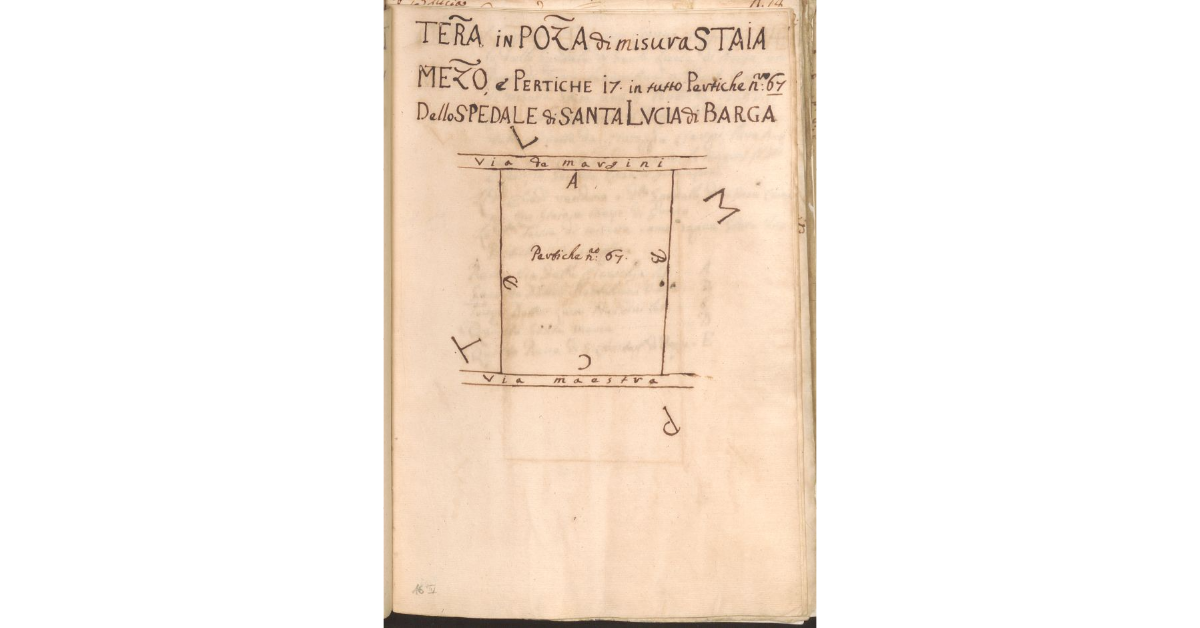 TER̃A in POZ̃A di misura STAIA
MEZ̃O, é PERTICHE i7. in tutto Pertiche n.ro 67
Dello SPEDALE di SANTA LVCIA di BARGA
L
Via de margini
A
M
Pertiche n.ro 67.
B
D
T
C
Via maestra
P